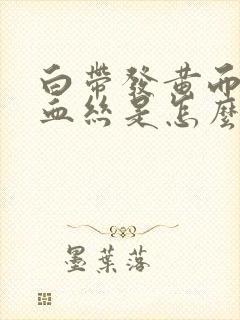 白帶發黃而
血絲是怎麽
墨葉落